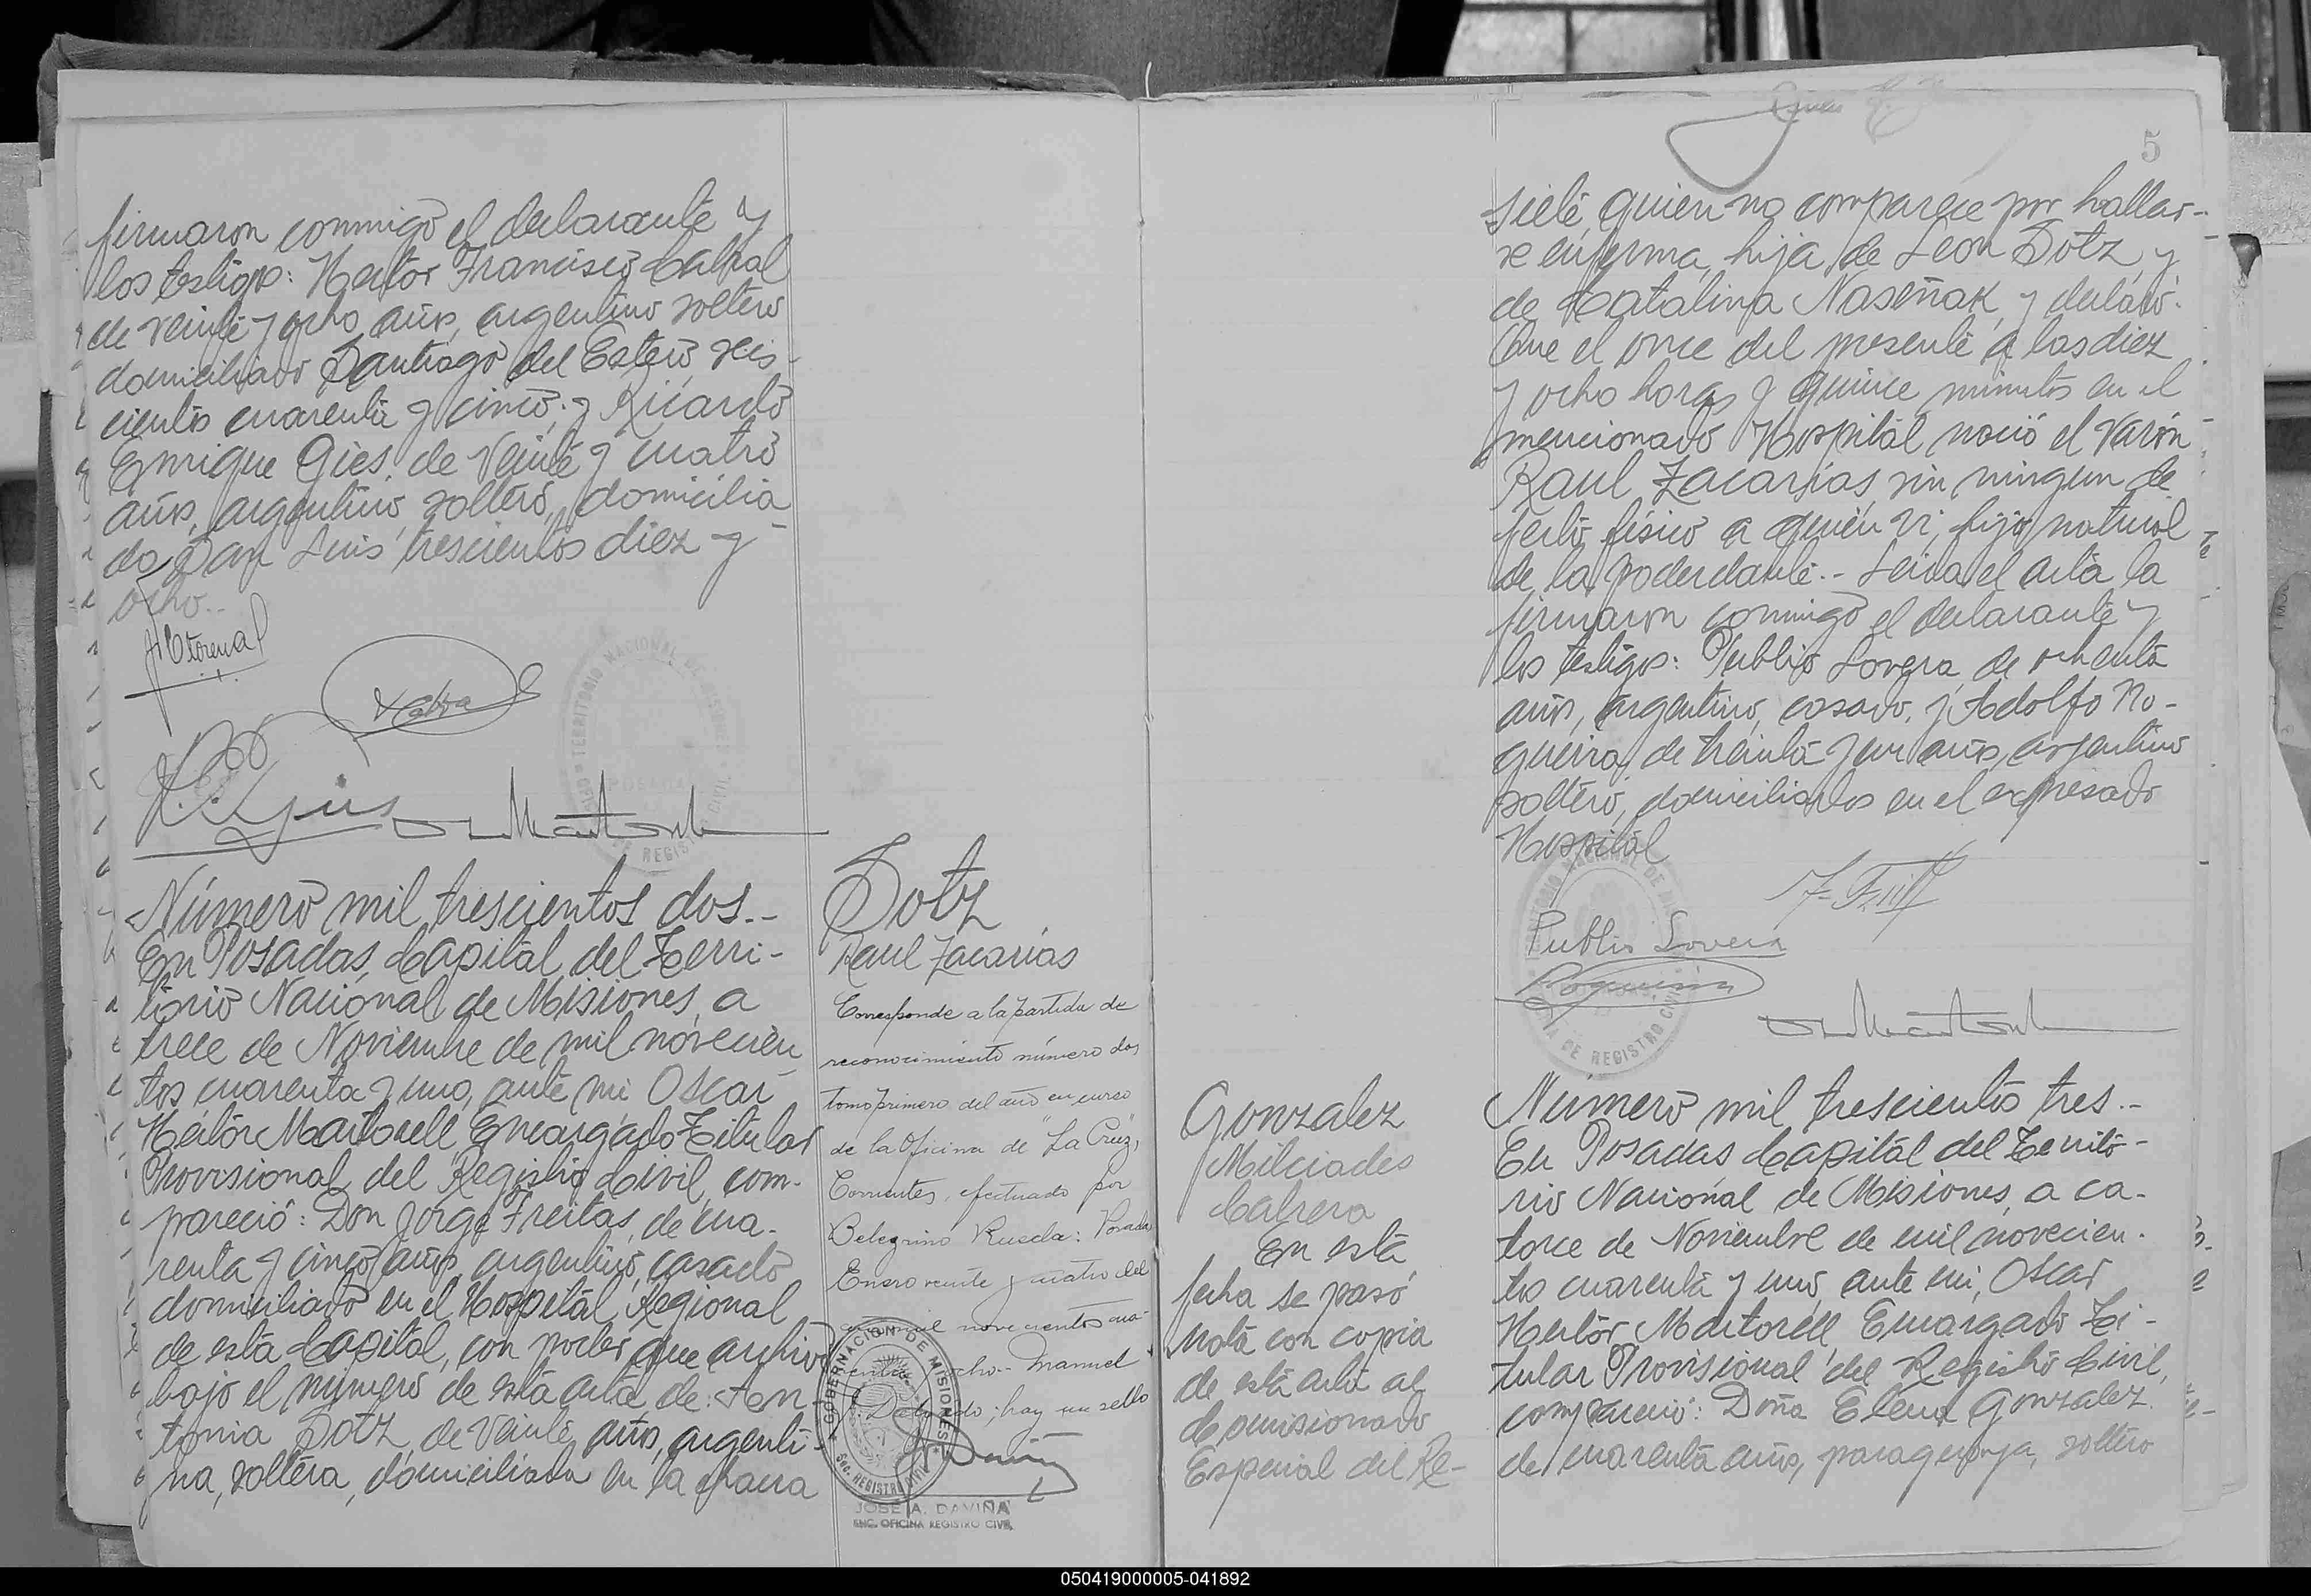 firmaron conmigo el declarante y
los testigos: Hector Francisco Cabral
de veinte y ocho años, argentino soltero
domiciliado Santiago del Estero seis-
cientos cuarenta y cinco; y Ricardo
Enrique Gies, de veinte y cuatro
años, argentino, soltero, domicilia
do San Luis trescientos diez y
ocho..-
TERRITORIO NACIONAL DE MISIONES
POSADAS
Número mil trescientos dos.-
En Posadas, Capital del Terri-
torio Nacional de Misiones, a
trece de Noviembre de mil novecien
tos cuarenta y uno, ante mi Oscar
Hector Martorell Encargado Titular
Provisional del Registro Civil, com-
pareció: Don Jorge Freitas, de cua-
renta y cinco años, argentino, casado
domiciliado en el Hospital Regional
de esta Capital, con poder que archivo
bajo el número de esta acta de: An-
tonia Sotz, de veinte años, argenti-
na, soltera, domiciliada en la chacra
Sotz
Raul Zacarias
Corresponde a la partida de
reconocimiento número dos
tomo primero del año en curso
de la Oficina de "La Cruz",
Corrientes, efectuado por
Belegrino Rueda: Posadas
Enero veinte y cuatro del
mil novecientos cua-
ocho- Manuel
hay un sello
GOBERNACION DE MISIONES
SEC. REGISTRO CIVIL
JOSE A. DAVIÑA
ENC. OFICINA REGISTRO CIVIL
5
siete quien no comparece por hallar-
se enferma, hija de Leon Sotz, y
de Catalina Naseñak, y declaró:
Que el once del presente a las diez
y ocho horas y quince minutos en el
mencionado Hospital nació el varón
Raul Zacarias, sin ningun de
fecto físico a quién vi, hijo natural
de la poderdante.- Leida el acta la
firmaron conmigo el declarante y
los testigos: Publio Lovera, de ochenta
años, argentino, casado, y Adolfo No-
gueira, de treinta y un años, argentino
soltero, domiciliados en el expresado
Hospital
Publio Lovera
Gonzalez
Milciades
Cabrera
En esta
fecha se pasó
nota con copia
de esta acta al
Comisionado
Especial del Re-
Número mil trescientos tres.-
En Posadas Capital del Territo-
rio Nacional de Misiones, a ca-
torce de Noviembre de mil novecien-
tos cuarenta y uno, ante mi, Oscar
Hector Martorell Encargado Ti-
tular Provisional del Registro Civil,
compareció: Doña Elena Gonzalez
de cuarenta años, paraguaya, soltera
050419000005-041892